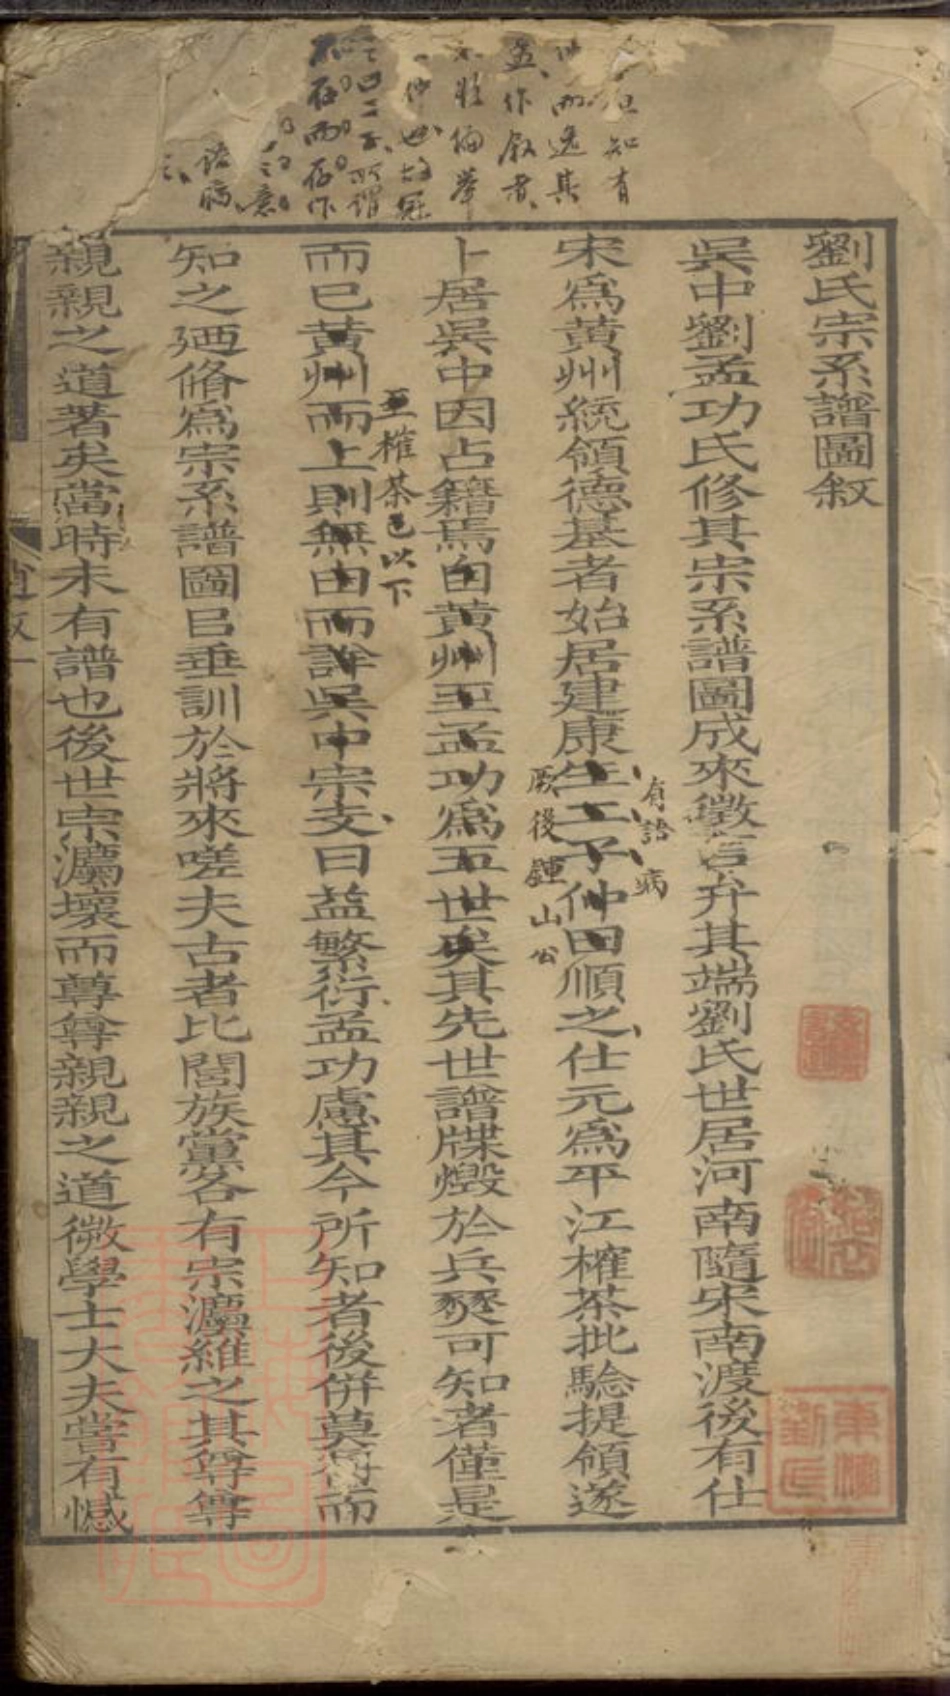 劉氏宗系譜圖敘
吳中劉孟功氏修其宗系譜圖成來徵言弁其端劉氏世居河南隨宋南渡後有仕
宋爲黃州統領德基者始居建康生二子仲曰順之仕元爲平江榷茶批驗提領遂
卜居吳中因占籍焉自黃州至孟功爲五世矣其先世譜牒燬於兵燹可知者僅是
而已黃州而上則無由而詳吳中宗支日益繁衍孟功慮其今所知者後併莫得而
知之廼脩爲宗系譜圖㠯垂訓於將來嗟夫古者比閭族黨各有宗灋維之其尊尊
親親之道著矣當時未有譜也後世宗灋壞而尊尊親親之道微學士大夫嘗有憾
有語病
厥後鍾山公
至榷茶邑以下
知有
而逸其
孟作敘者
不能倫舉
仲也故冠
所謂
存而存作
之意
語瑞
東
劉氏